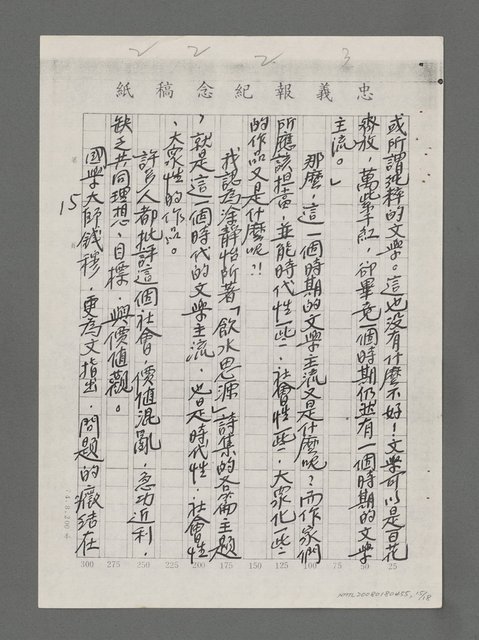 忠義報紀念稿紙
或所謂純粹的文學。這也沒有什麼不好！文學可以是百花
齊放，萬紫千紅，卻畢竟一個時期仍然有一個時期的文學
主流。」
那麼，這一個時期的文學主流又是什麼呢？而作家們
所應該担當，並能時代性一些，社會性一些，大眾化一些
的作品又是什麼呢？！
我認為涂靜怡所著「飲水思源」詩集的各篇主題
，就是這一個時代的文學主流，也是時代性，社會性
、大眾性的作品。
許多人都批評這個社會，價值混亂，急功近利，
缺乏共同理想、目標，與價值觀。
國學大師錢穆，更為文指出，問題的癥結在
15
25
50
75
100
125
150
175
200
225
250
275
300
NMTL20080180455, 15/18